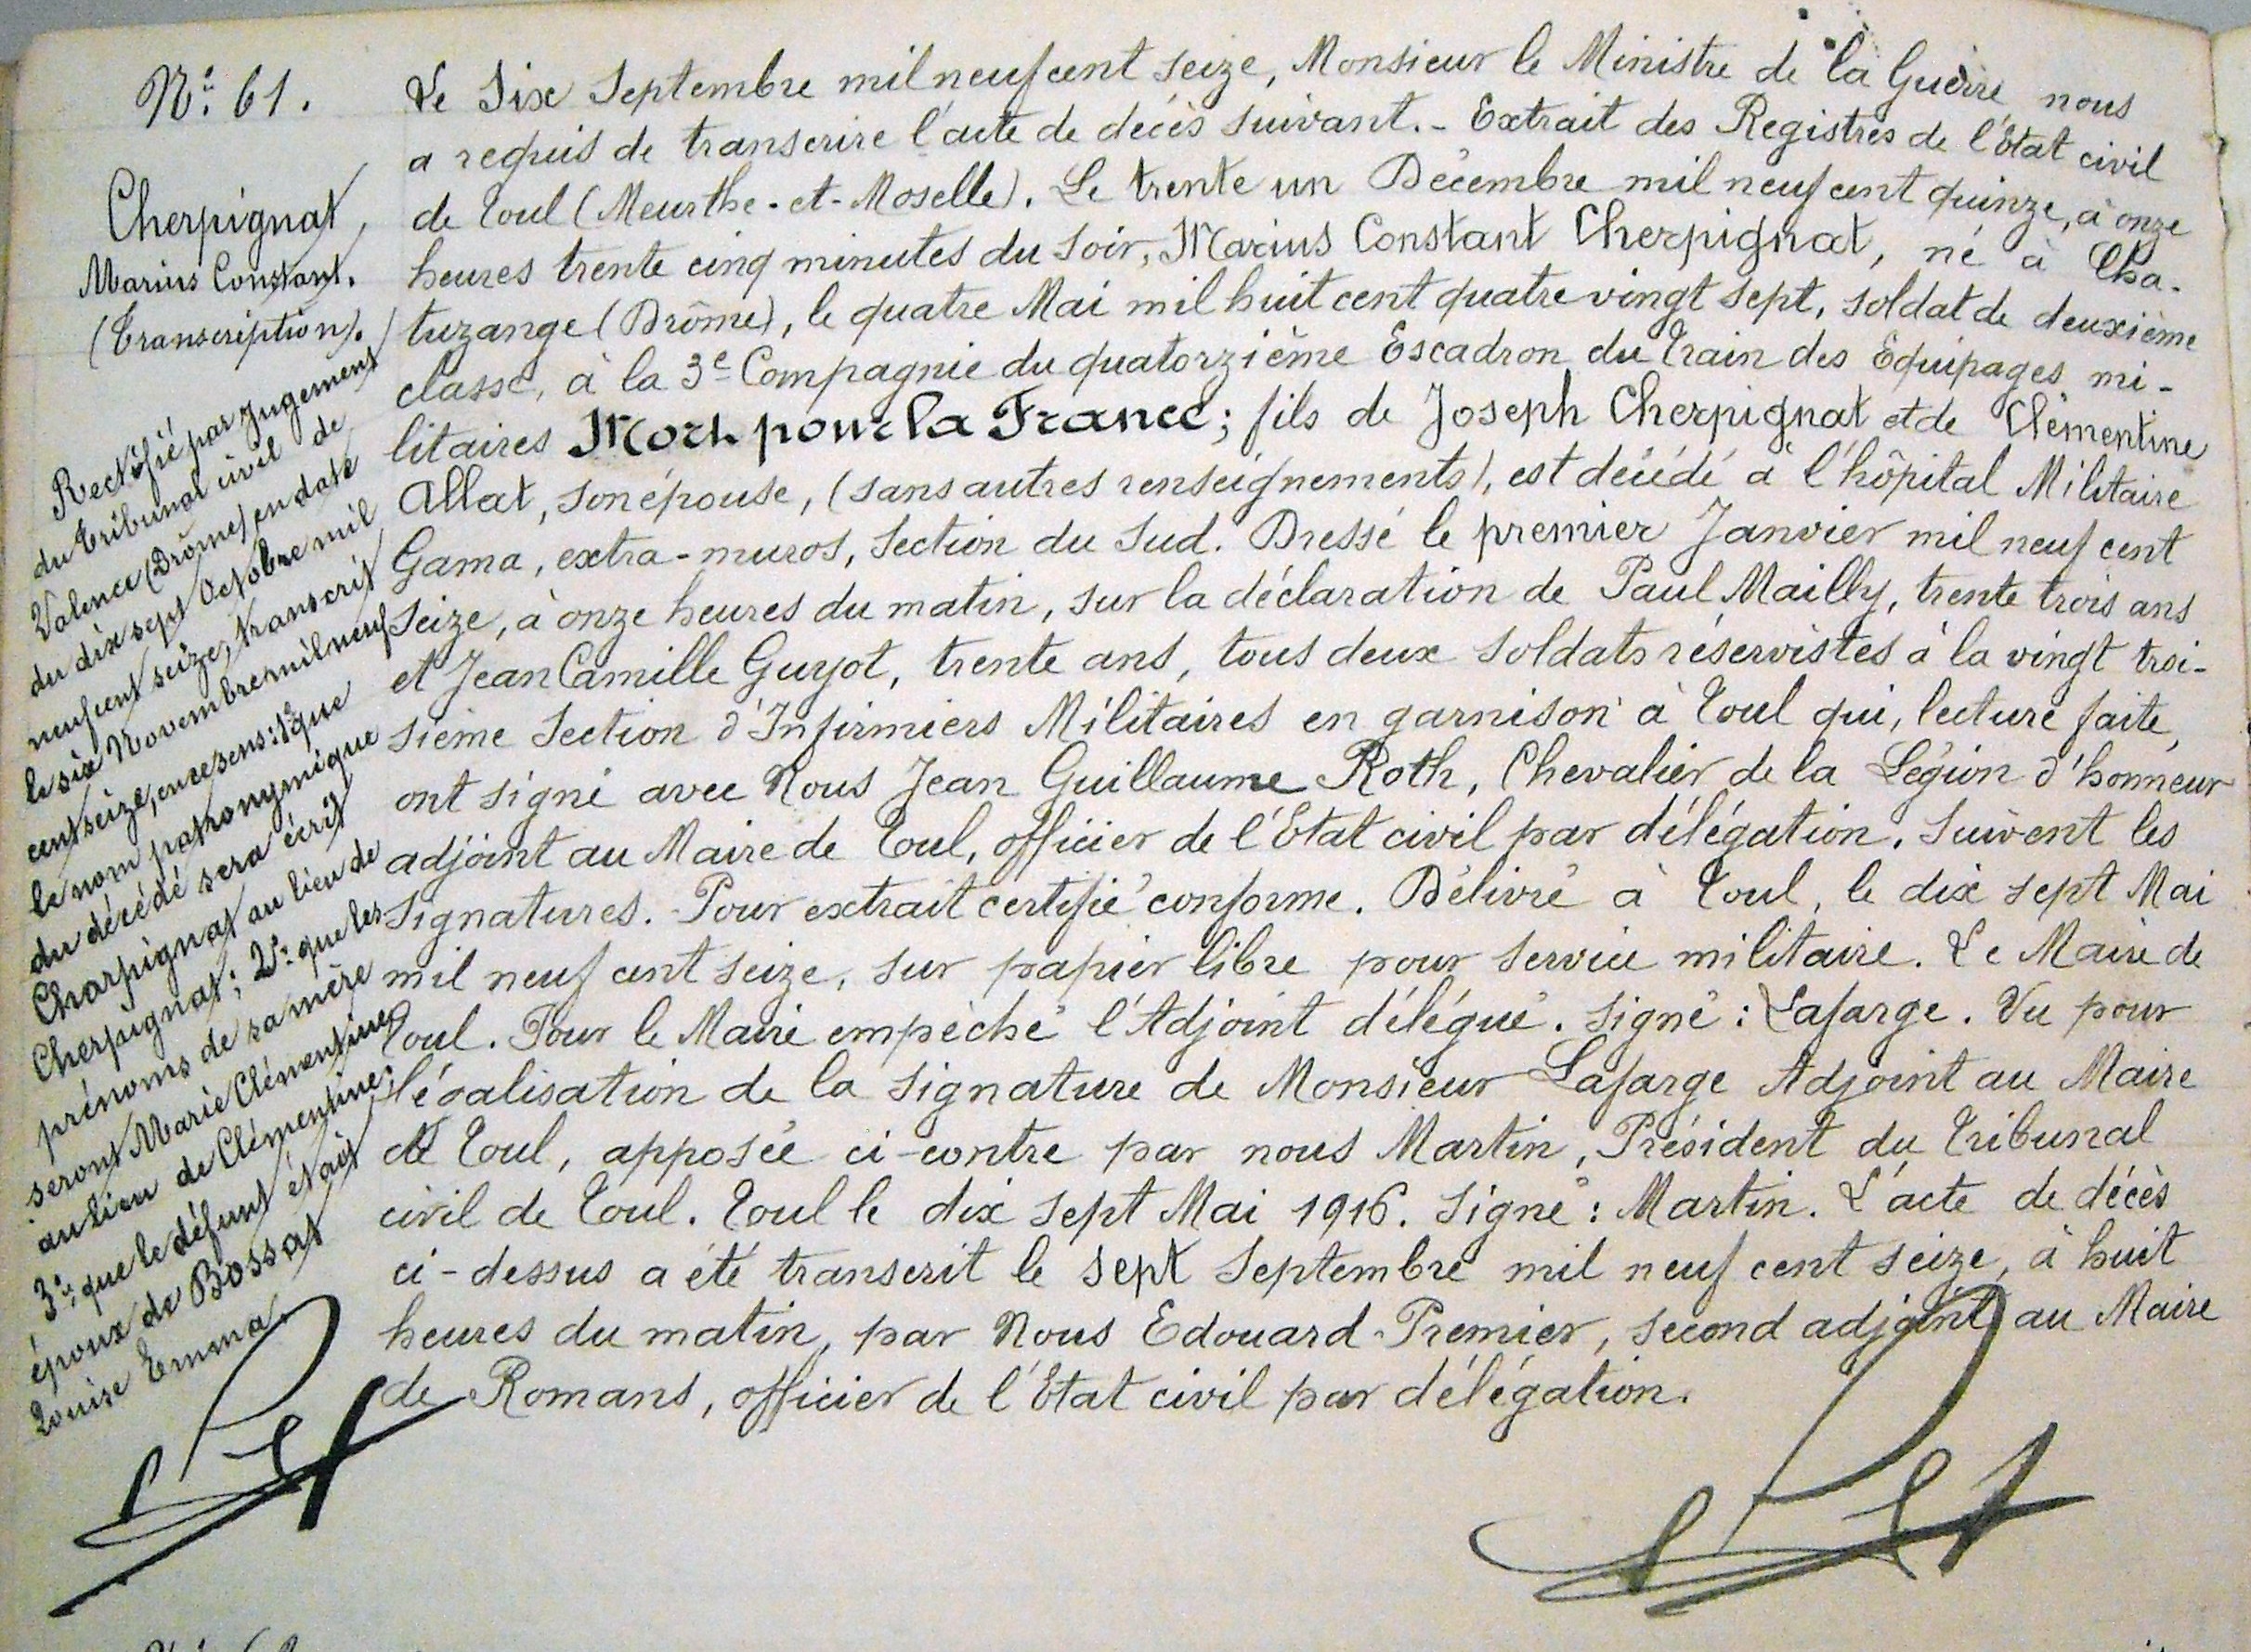 N°: 61.
Cherpignat,
Marius Constant.
(Transcription).
Rectifié par jugement
du tribunal civil de
Valence (Drôme) en date
du dix sept Octobre mil
neuf cent seize, transcrit
le six Novembre mil neuf
cent seize, en ce sens: 1° que
le nom patronymique
du décédé sera écrit
Charpignat au lieu de
Cherpignat; 2°: que les
prénoms de sa mère
seront Marie Clémentine
au lieu de Clémentine;
3°: que le défunt était
époux de Bossat
Louise Emma.
Le Six Septembre mil neuf cent seize, Monsieur le Ministre de la Guerre nous
a requis de transcrire l'acte de décès suivant. - Extrait des Registres de l'Etat civil
de Toul (Meurthe-et-Moselle). Le trente un Décembre mil neuf cent quinze, à onze
heures trente cinq minutes du soir, Marius Constant Cherpignat, né à Cha-
tuzange (Drôme), le quatre Mai mil huit cent quatre vingt sept, soldat de deuxième
classe, à la 3e Compagnie du quatorzième Escadron du Train des Equipages mi-
litaires Mort pour la France; fils de Joseph Cherpignat et de Clémentine
Allat, son épouse, (sans autres renseignements), est décédé à l'hôpital Militaire
Gama, extra-muros, Section du Sud. Dressé le premier Janvier mil neuf cent
seize, à onze heures du matin, sur la déclaration de Paul Mailly, trente trois ans
et Jean Camille Guyot, trente ans, tous deux soldats réservistes à la vingt troi-
sième Section d'Infirmiers Militaires en garnison à Toul qui, lecture faite,
ont signé avec Nous Jean Guillaume Roth, Chevalier de la Légion d'honneur
adjoint au Maire de Toul, officier de l'Etat civil par délégation. Suivent les
signatures. - Pour extrait certifié conforme. Délivré à Toul, le dix sept Mai
mil neuf cent seize, sur papier libre pour service militaire. Le Maire de
Toul. Pour le Maire empêché l'Adjoint délégué. Signé: Lafarge. Vu pour
légalisation de la signature de Monsieur Lafarge Adjoint au Maire
de Toul, apposée ci-contre par nous Martin, Président du Tribunal
civil de Toul. Toul le dix sept Mai 1916. Signé: Martin. L'acte de décès
ci-dessus a été transcrit le sept Septembre mil neuf cent seize, à huit
heures du matin, par Nous Edouard Premier, second adjoint au Maire
de Romans, officier de l'Etat civil par délégation.